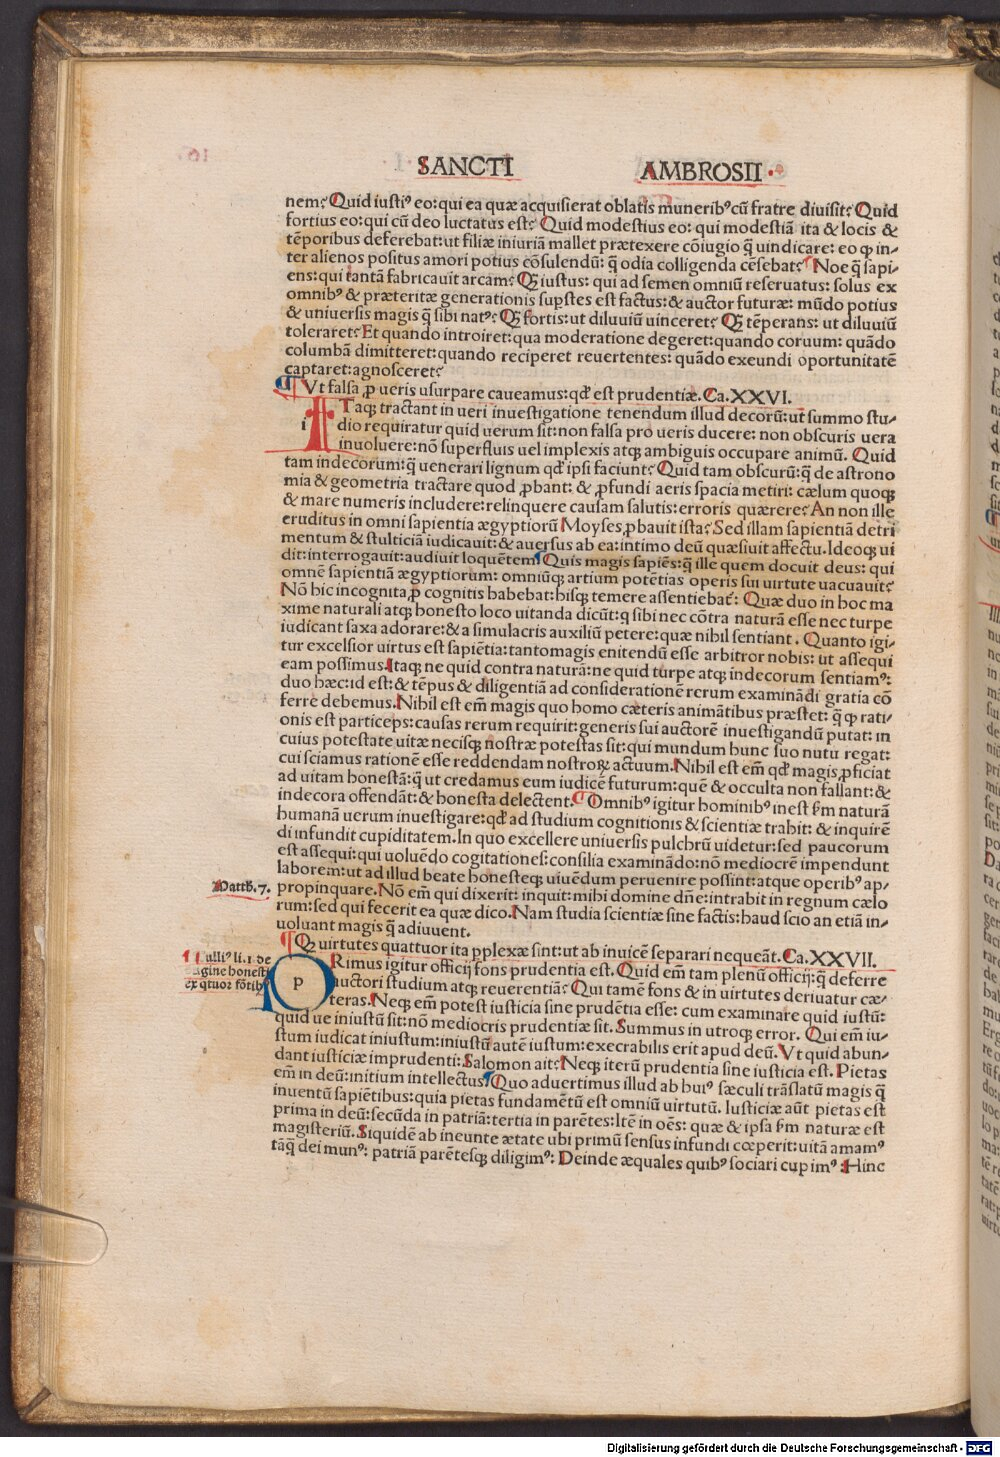 SANCTI AMBROSII
nem? Quid iustiꝰ eo: qui ea quæ acquisierat oblatis muneribꝰ cū fratre diuisit? Quid
fortius eo: qui cū deo luctatus est? Quid modestius eo: qui modestiā ita & locis &
tēporibus deferebat: ut filiæ iniuriā mallet prætexere cōiugio q̄ uindicare: eo ꝙ in-
ter alienos positus amori potius cōsulendū: q̄ odia colligenda cēsebat? Noe q̄ sapi-
ens: qui tantā fabricauit arcam? Qꝫ iustus: qui ad semen omniū reseruatus: solus ex
omnibꝰ & præteritæ generationis supstes est factus: & auctor futuræ: mūdo potius
& uniuersis magis q̄ sibi natꝰ? Qꝫ fortis: ut diluuiū uinceret? Qꝫ tēperans: ut diluuiū
toleraret? Et quando introiret: qua moderatione degeret: quando coruum: quādo
columbā dimitteret: quando reciperet reuertentes: quādo exeundi oportunitatē
captaret: agnosceret?
¶ Vt falsa ꝓ ueris usurpare caueamus: qd' est prudentiæ. Ca. XXVI.
i Taqꝫ tractant in ueri inuestigatione tenendum illud decorū: ut summo stu-
dio requiratur quid uerum sit: non falsa pro ueris ducere: non obscuris uera
inuoluere: nō superfluis uel implexis atqꝫ ambiguis occupare animū. Quid
tam indecorum: q̄ uenerari lignum qd' ipsi faciunt? Quid tam obscurū: q̄ de astrono
mia & geometria tractare quod ꝓbant: & ꝓfundi aeris spacia metiri: cælum quoqꝫ
& mare numeris includere: relinquere causam salutis: erroris quærere? An non ille
eruditus in omni sapientia ægyptiorū Moyses ꝓbauit ista? Sed illam sapientiā detri
mentum & stulticiā iudicauit: & auersus ab ea: intimo deū quæsiuit affectu. Ideoqꝫ ui
dit: interrogauit: audiuit loquētem. Quis magis sapiēs: q̄ ille quem docuit deus: qui
omnē sapientiā ægyptiorum: omniūqꝫ artium potētias operis sui uirtute uacuauit?
Nō hic incognita ꝓ cognitis habebat: hisqꝫ temere assentiebat: Quæ duo in hoc ma
xime naturali atqꝫ honesto loco uitanda dicūt: q sibi nec cōtra naturā esse nec turpe
iudicant saxa adorare: & a simulacris auxiliū petere: quæ nihil sentiant. Quanto igi-
tur excelsior uirtus est sapiētia: tantomagis enitendū esse arbitror nobis: ut assequi
eam possimus. Itaqꝫ ne quid contra naturā: ne quid turpe atqꝫ indecorum sentiamꝰ:
duo hæc: id est: & tēpus & diligentiā ad considerationē rerum examinādi gratia cō
ferre debemus. Nihil est em̄ magis quo homo cæteris animātibus præstet: q̄ ꝙ rati-
onis est particeps: causas rerum requirit: generis sui auctorē inuestigandū putat: in
cuius potestate uitæ necisqꝫ nostræ potestas sit: qui mundum hunc suo nutu regat:
cui sciamus rationē esse reddendam nostroꝝ actuum. Nihil est em̄ qd' magis ꝓficiat
ad uitam honestā: q̄ ut credamus eum iudicē futurum: quē & occulta non fallant: &
indecora offendāt: & honesta delectent. ¶ Omnibꝰ igitur hominibꝰ inest fm naturā
humanā uerum inuestigare: qd' ad studium cognitionis & scientiæ trahit: & inquirē
di infundit cupiditatem. In quo excellere uniuersis pulchrū uidetur: sed paucorum
est assequi: qui uoluēdo cogitationes: consilia examinādo: nō mediocrē impendunt
laborem: ut ad illud beate honesteqꝫ uiuēdum peruenire possint: atque operibꝰ ap-
Matth. 7. propinquare. Nō em̄ qui dixerit: inquit: mihi domine dn̄e: intrabit in regnum cælo
rum: sed qui fecerit ea quæ dico. Nam studia scientiæ sine factis: haud scio an etiā in-
uoluant magis q̄ adiuuent.
¶ Qꝫ uirtutes quattuor ita pplexæ sint: ut ab inuicē separari nequeāt. Ca. XXVII.
¶ Tulliꝰ li. 1. de
agine honesti
ex qtuor fōtibꝰ
p Rimus igitur officij fons prudentia est. Quid em̄ tam plenū officij: q̄ deferre
auctori studium atqꝫ reuerentiā? Qui tamē fons & in uirtutes deriuatur cæ-
teras. Neqꝫ em̄ potest iusticia sine prudētia esse: cum examinare quid iustū:
quid ue iniustū sit: nō mediocris prudentiæ sit. Summus in utroqꝫ error. Qui em̄ iu-
stum iudicat iniustum: iniustū autē iustum: execrabilis erit apud deū. Vt quid abun-
dant iusticiæ imprudenti: Salomon ait? Neqꝫ iterū prudentia sine iusticia est. Pietas
em̄ in deū: initium intellectus. Quo aduertimus illud ab huiꝰ sæculi trāslatū magis q̄
inuentū sapiētibus: quia pietas fundamētū est omniū uirtutū. Iusticiæ aūt pietas est
prima in deū: secūda in patriā: tertia in parētes: Itē in oēs: quæ & ipsa fm naturæ est
magisteriū. Siquidē ab ineunte ætate ubi primū sensus infundi cœperit: uitā amamꝰ
tāq̄ dei munꝰ: patriā parētesqꝫ diligimꝰ: Deinde æquales quibꝰ sociari cupimꝰ: Hinc
Digitalisierung gefördert durch die Deutsche Forschungsgemeinschaft - DFG